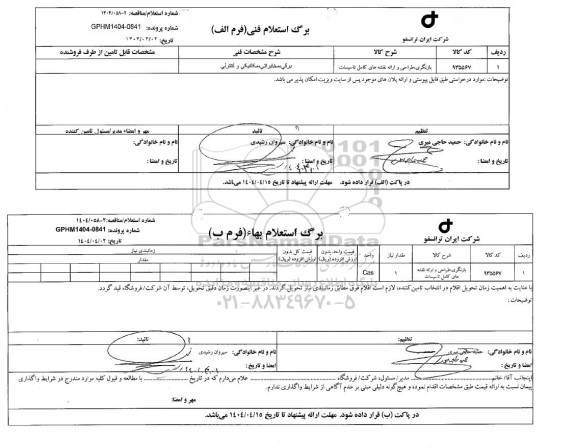 شماره استعلام/مناقصه: ۱۴۰۴/۰۵۸-۲
برگ استعلام فنی(فرم الف)
شماره پرونده: GPHM1404-0841
شرکت ایران ترانسفو
ردیف کد کالا شرح کالا شرح مشخصات فنی مشخصات قابل تامین از طرف فروشنده
۱ ۹۳۵۵۶۷ بازنگری،طراحی و ارائه نقشه های کامل تاسیسات برقی،مخابراتی،مکانیکی و کنترلی
توضیحات :موارد درخواستی طبق فایل پیوستی و ارائه پلان های موجود پس از سایت ویزیت امکان پذیر می باشد.
تنظیم تائید مهر و امضاء مدیر/مسئول تامین کننده
نام و نام خانوادگی: حمید حاجی میری نام و نام خانوادگی: سیروان رشیدی نام و نام خانوادگی:
تاریخ و امضا : تاریخ و امضا : تاریخ و امضا :
در پاکت (الف) قرار داده شود. مهلت ارائه پیشنهاد تا تاریخ ۱۴۰۴/۰۴/۱۵ می‌باشد.
شماره استعلام/مناقصه:۱۴۰۴/۰۵۸-۲
برگ استعلام بهاء(فرم ب)
شماره پرونده: GPHM1404-0841
شرکت ایران ترانسفو
تاریخ: ۱۴۰۴/۰۴/۰۲
ردیف کد کالا شرح کالا مقدار نیاز واحد قیمت واحد بدون ارزش افزوده (ریال) قیمت کل بدون ارزش افزوده (ریال) زمانبندی نیاز
مقدار
۱ ۹۳۵۵۶۷ بازنگری،طراحی و ارائه نقشه های کامل تاسیسات ۱ Cas
ParsNamadData
۰۲۱-۸۸۳۴۹۶۷۰-۵
با عنایت به اهمیت زمان تحویل اقلام در انتخاب تامین‌کننده، لازم است اقلام فوق مطابق زمانبندی نیاز تحویل گردند. در غیر اینصورت زمان دقیق تحویل، توسط آن شرکت/فروشگاه قید گردد.
توضیحات :
تنظیم: تائید:
نام و نام خانوادگی: حمید حاجی میری نام و نام خانوادگی: سیروان رشیدی
تاریخ و امضا : تاریخ و امضا :
اینجانب آقا/خانم مدیر/مسئول، شرکت/فروشگاه اعلام می‌دارم که در تاریخ با مطالعه و قبول کلیه موارد مندرج در شرایط واگذاری
پیمان نسبت به ارائه قیمت طبق مشخصات اقدام نموده و هیچ‌گونه دلیلی مبنی بر عدم آگاهی از شرایط واگذاری ندارم.
مهر و امضا
در پاکت (ب) قرار داده شود. مهلت ارائه پیشنهاد تا تاریخ ۱۴۰۴/۰۴/۱۵ می‌باشد.